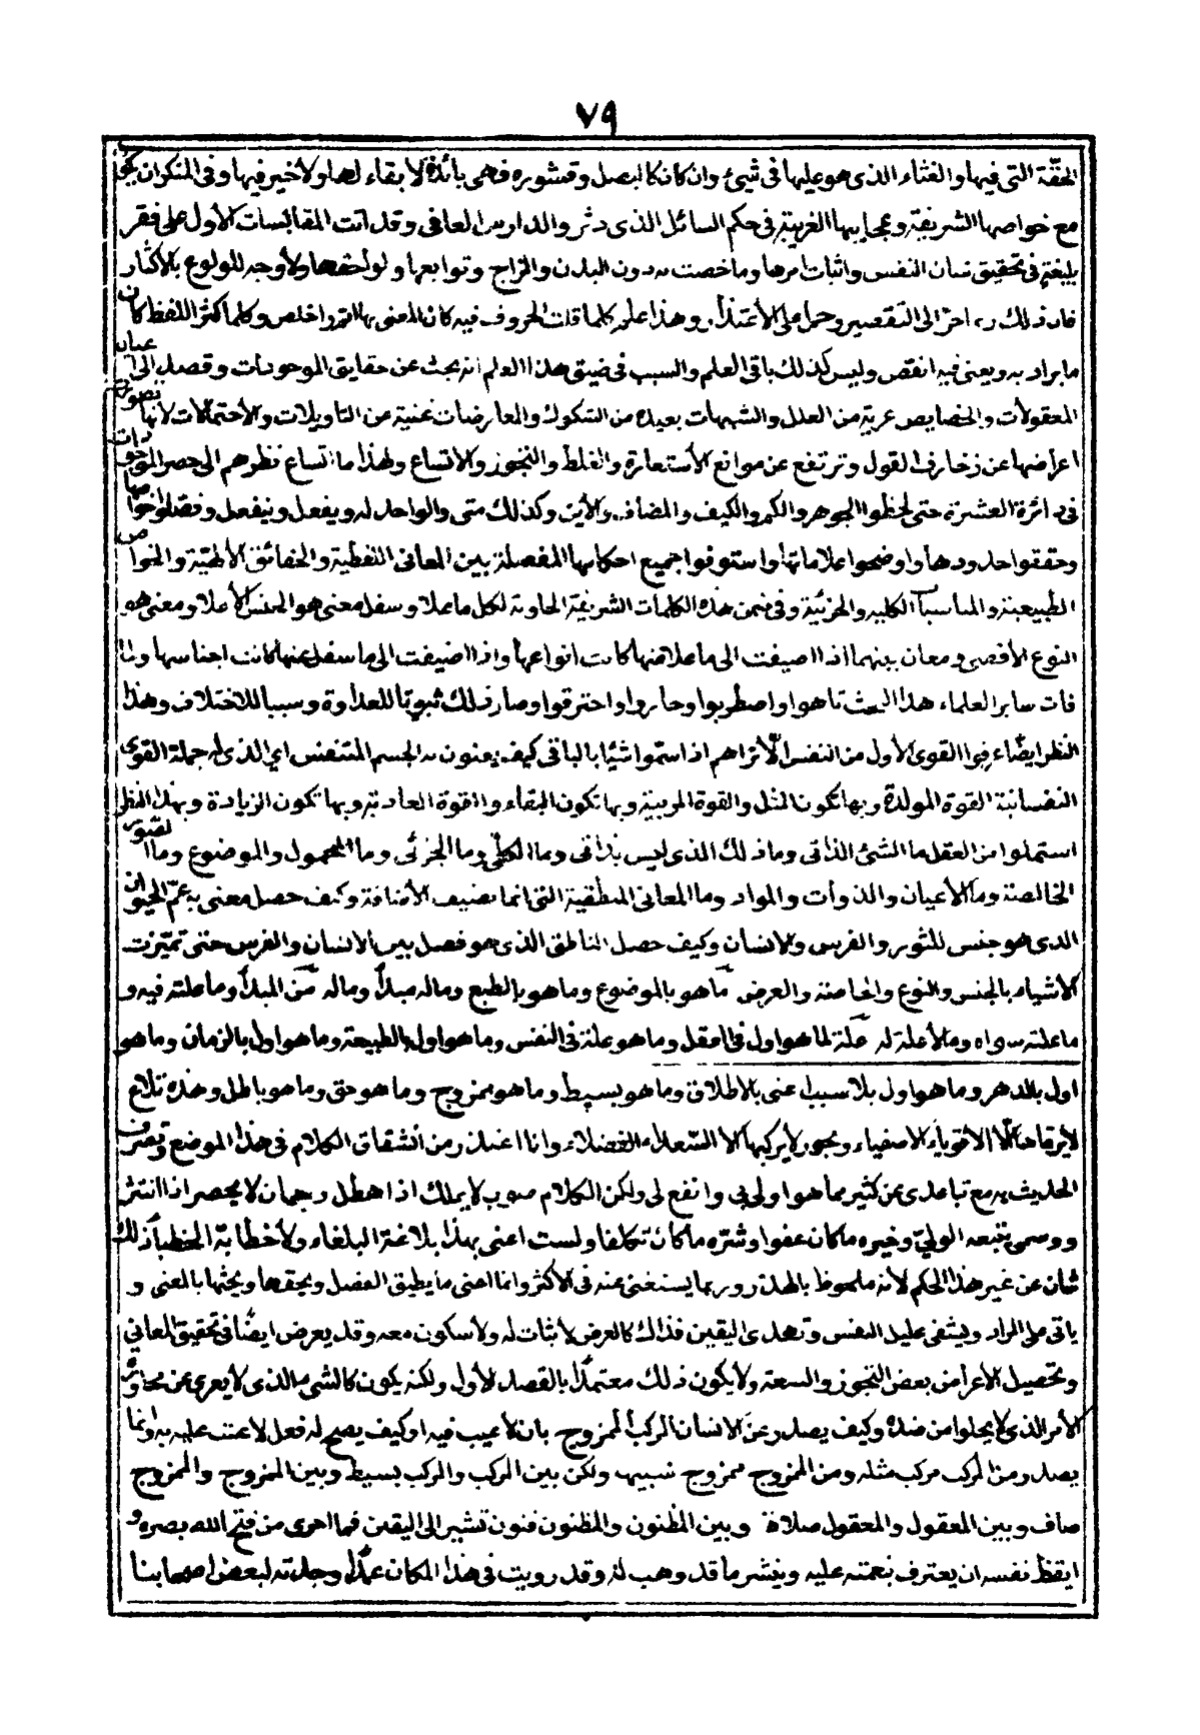 ٧٩
الحقّة التى فيها والغثاء الذى هو عليها فى شيئ وان كان كالبصل وقشوره فهى بائدة لا بقاء لها ولا خير فيها وفى المنكوران
مع خواصها الشريفة وعجايبها الغريبة فى حكم السائل الذى دثر والدارس العافى وقد اتت المقابسات الأول على فقر
بليغة فى تحقيق شان النفس واثبات امرها وما خصت به دون البدن والمزاج وتوابعها ولواحقها ولا وجه للولوع بالاكثار
فان ذلك ربما جرّ الى التقصير وحمل على الأعتذار وهذا علم كلما قلت الحروف فيه كان المعنى بها اتم واخلص وكلما كثر اللفظ كان
ما يراد به ويعنى فيه انقص وليس كذلك باقى العلم والسبب فى ضيق هذا العلم انه بحث عن حقايق الموجودات وقصد الى عيان
المعقولات والخصايص عرية من العلل والشبهات بعيدة من الشكوك والمعارضات غنية عن التاويلات والأحتمالات لأنها تصون
اعراضها عن زخارف القول وترتفع عن مواقع الأستعارة والغلط والتجوز والاتساع ولهذا ما اتساع نظرهم الى حصر الموجودات
فى دائرة العشرة حتى لحظوا الجوهر والكم والكيف والمضاف والأين وكذلك متى والواحد له ويفعل وينفعل وفصلوا خواصها
وحققوا حدودها واوضحوا علاماتها واستوفوا جميع احكامها المفصلة بين المعانى اللفظية والحقائق الألهيّة والخواص
الطبيعية والمناسبات الكلية والجزئية وفى ضمن هذه الكلمات الشريفة الحاوية لكل ما علا وسفل معنى هو الجنس الأعلا ومعنى هو
النوع الأقصى ومعان بينهما اذا اضيفت الى ما علا منها كانت انواعها واذا اضيفت الى ما سفل عنها كانت اجناسها ولما
فات ساير العلماء هذا البحث تاهوا واضطربوا وحاروا واحترقوا وصار ذلك ثبوتا للعداوة وسببا للاختلاف وهذا
النظر ايضًا عرفوا القوى الأول من النفس الّا تراهم اذا سمّوا شيئا بالباقى كيف يعنون به الجسم المتنفس اي الذى له جملة القوى
النفسانية القوة المولدة وبها تكون المثل والقوة المربية وبها تكون البقاء والقوة الغادية وبها تكون الزيادة وبهذا النظر
استملوا من العقل ما الشئ الذاتى وما ذلك الذى ليس بذاتى وما الكلّى وما الجزئى وما المحمول والموضوع وما الصور
الخالصة وما الأعيان والذوات والمواد وما المعانى المنطقية التى انما تضيف الأضافة وكيف حصل معنى به عمّ الحيوان
الذى هو جنس للثور والفرس والانسان وكيف حصل الناطق الذى هو فصل بين الانسان والفرس حتى تميّزت
الاشياء بالجنس والنوع والخاصة والعرض ما هو بالموضوع وما هو بالطبع وماله مبدأ وماله من المبدأ وما علته فيه و
ما علته سواه وما لأعلة له علّة لما هو اول فى العقل وما هو علة فى النفس وما هو اول بالطبيعة وما هو اول بالزمان وما هو
اول بالدهر وما هو اول بلا سبب اعنى بالاطلاق وما هو بسيط وما هو ممزوج وما هو حق وما هو باطل وهذه تلاع
لا يرقاها الّا الاقوياء الاصفياء وبحور لا يركبها الا السّعداء الفضلاء وانا اعتذر من انشقاق الكلام فى هذا الموضع وتصرف
الحديث به مع تباعدى عن كثير مما هو اولى بى وانفع لى ولكن الكلام صوب لا يملك اذا هطل وجمان لا يحصر اذا انتثر
ووسمى يتبعه الولىّ وخيره ما كان عفوا وشرّه ما كان تكلفا ولست اعنى بهذا بلاغة البلغاء ولا خطابة الخطباء ذلك
شان عن غير هذا الحكم لأنه ملحوظ بالهذر وربما يستغنى عنه فى الاكثر وانما اعنى ما يطبق الفصل ويحقها ويحثها بالمعنى و
ياتى على المراد ويشفى عليل النفس وتهدى اليقين فذاك كالعرض لا ثبات له ولا سكون معه وقد يعرض ايضًا فى تحقيق المعانى
وتحصيل الأعراض بعض التجوز والسعة ولا يكون ذلك معتمدًا بالقصد الأول ولكنه يكون كالشىء الذى لا يعرى عن مجاورة
الأمر الذى لا يخلوا من ضده وكيف يصدر عن الانسان المركب الممزوج بان لا عيب فيه او كيف يصح له فعل لا عتب عليه به وانما
يصدر من المركب مركب مثله ومن الممزوج ممزوج شبيهه ولكن بين المركب والمركب بسيط وبين الممزوج والممزوج
صاف وبين المعقول والمعقول صلاة وبين المظنون والمظنون فنون تشير الى اليقين فما احرى من فتح الله بصره و
ايقظ نفسه ان يعترف بنعمته عليه وينشر ما قد وهب له وقد رويت فى هذا المكان عمدًا وجدته لبعض اصحابنا